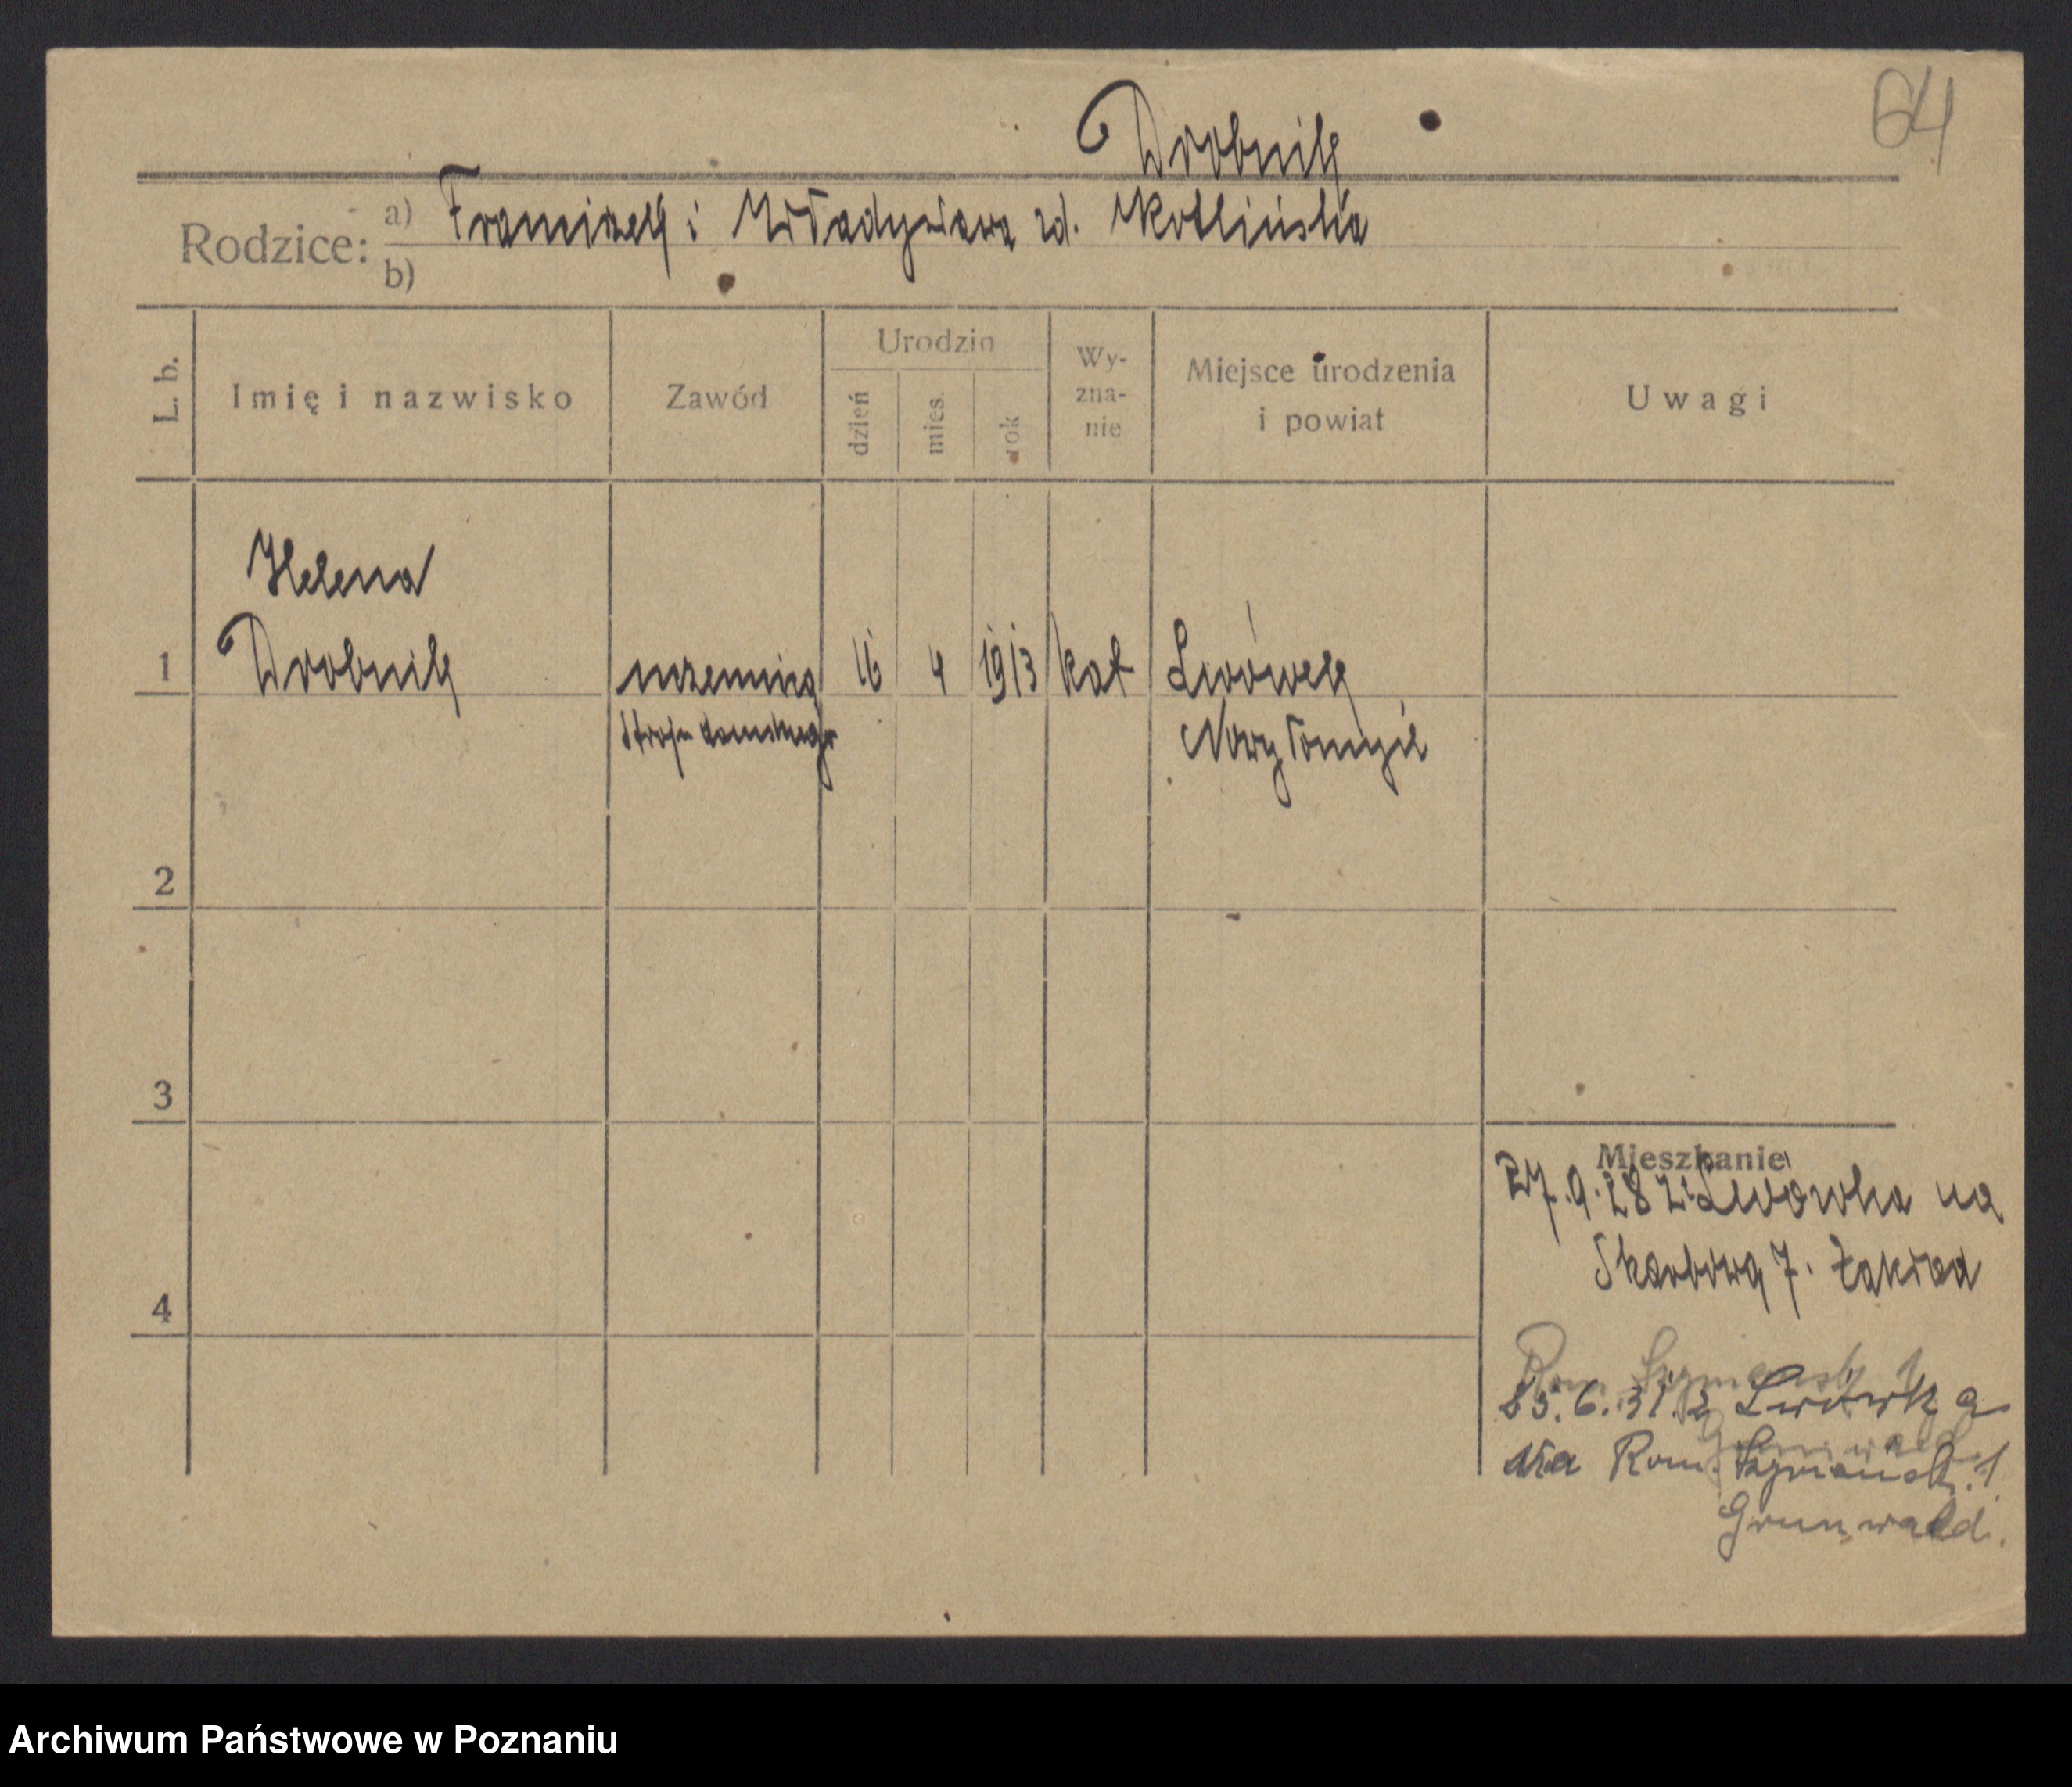 64
Drobnik
Rodzice: a) Franciszek i Władysława zd. Kotlińska
b)
L. b.
Imię i nazwisko
Zawód
Urodzin
dzień
mies.
rok
Wy-
zna-
nie
Miejsce urodzenia
i powiat
Uwagi
Helena
1 Drobnik uczennica 16 4 1913 kat Lwówek
stroju damskiego Nowy Tomyśl
2
3
4
Mieszkanie
27.9.28 z Lwówka na
Skarbową 7. Zakład
Rom. Szymańsk 1
Grunwald
25.6.31. z Lwówka
na Rom. Szymańsk. 1
Grunwald.
Archiwum Państwowe w Poznaniu